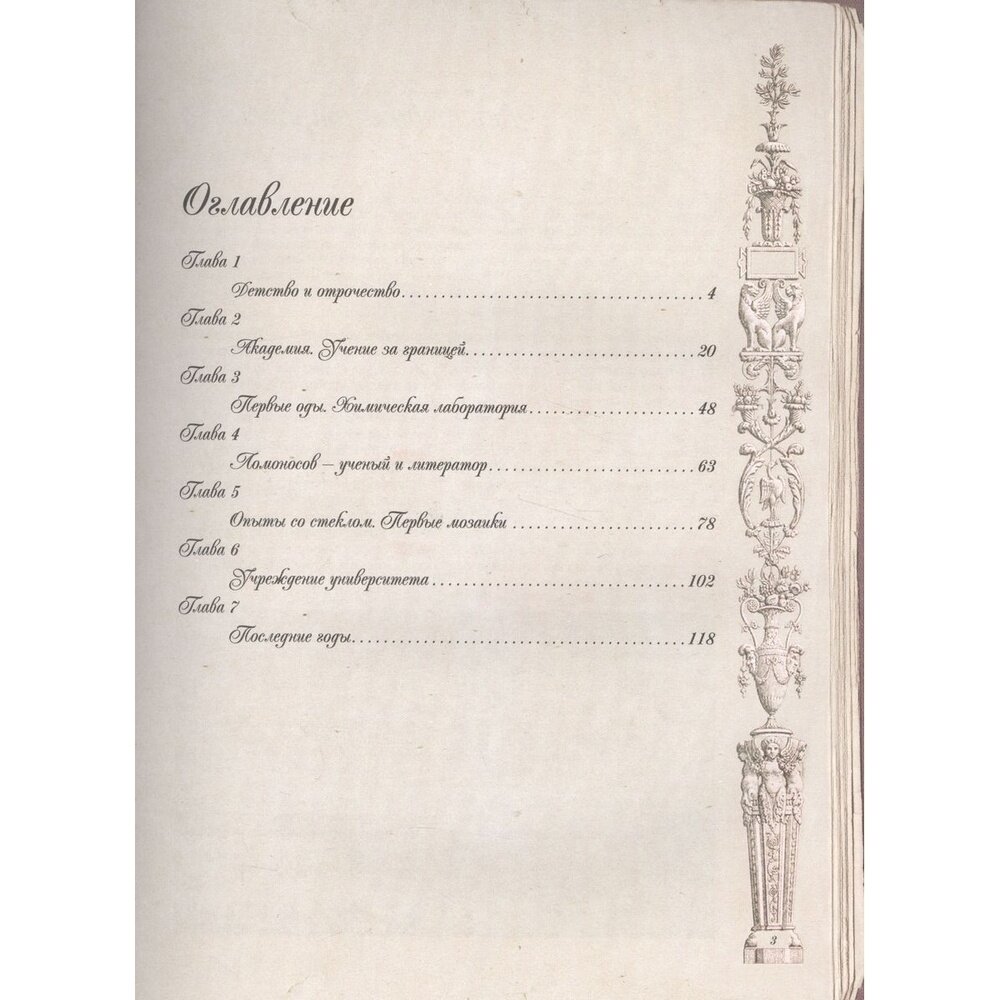 Оглавление
Глава 1
Детство и отрочество................................ 4
Глава 2
Академия. Учение за границей......................... 20
Глава 3
Первые оды. Химическая лаборатория.................. 48
Глава 4
Ломоносов – ученый и литератор....................... 63
Глава 5
Опыты со стеклом. Первые мозаики .................... 78
Глава 6
Учреждение университета............................. 102
Глава 7
Последние годы...................................... 118
3